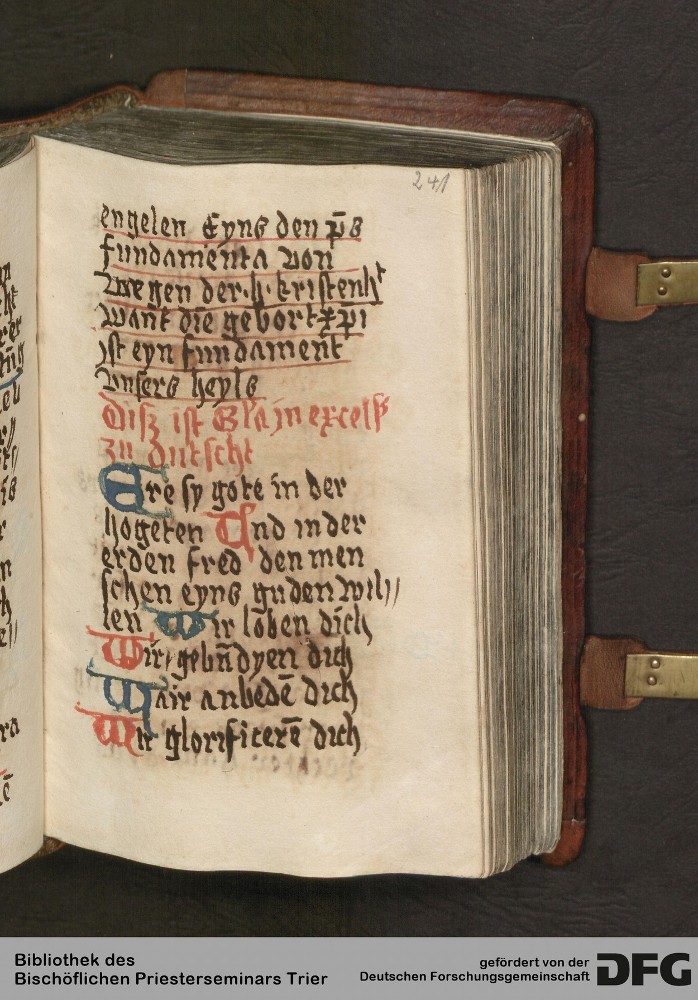 241
engelen Eyns den p̄s
fundamenta von
wegen der ·h· kristenht
want die gebort xp̄i
jst eyn fundament
vnsers heyls
Disz ist Gl'a jn excelß
zu dutscht
Ere sy gote in der
hogeten Und in der
erden fred den men
schen eyns guden wil//
len Wir loben dich
Wir gebn̄dyen dich
Wair anbedē dich
Wir glorificerē dich
Bibliothek des
Bischöflichen Priesterseminars Trier
gefördert von der
Deutschen Forschungsgemeinschaft
DFG